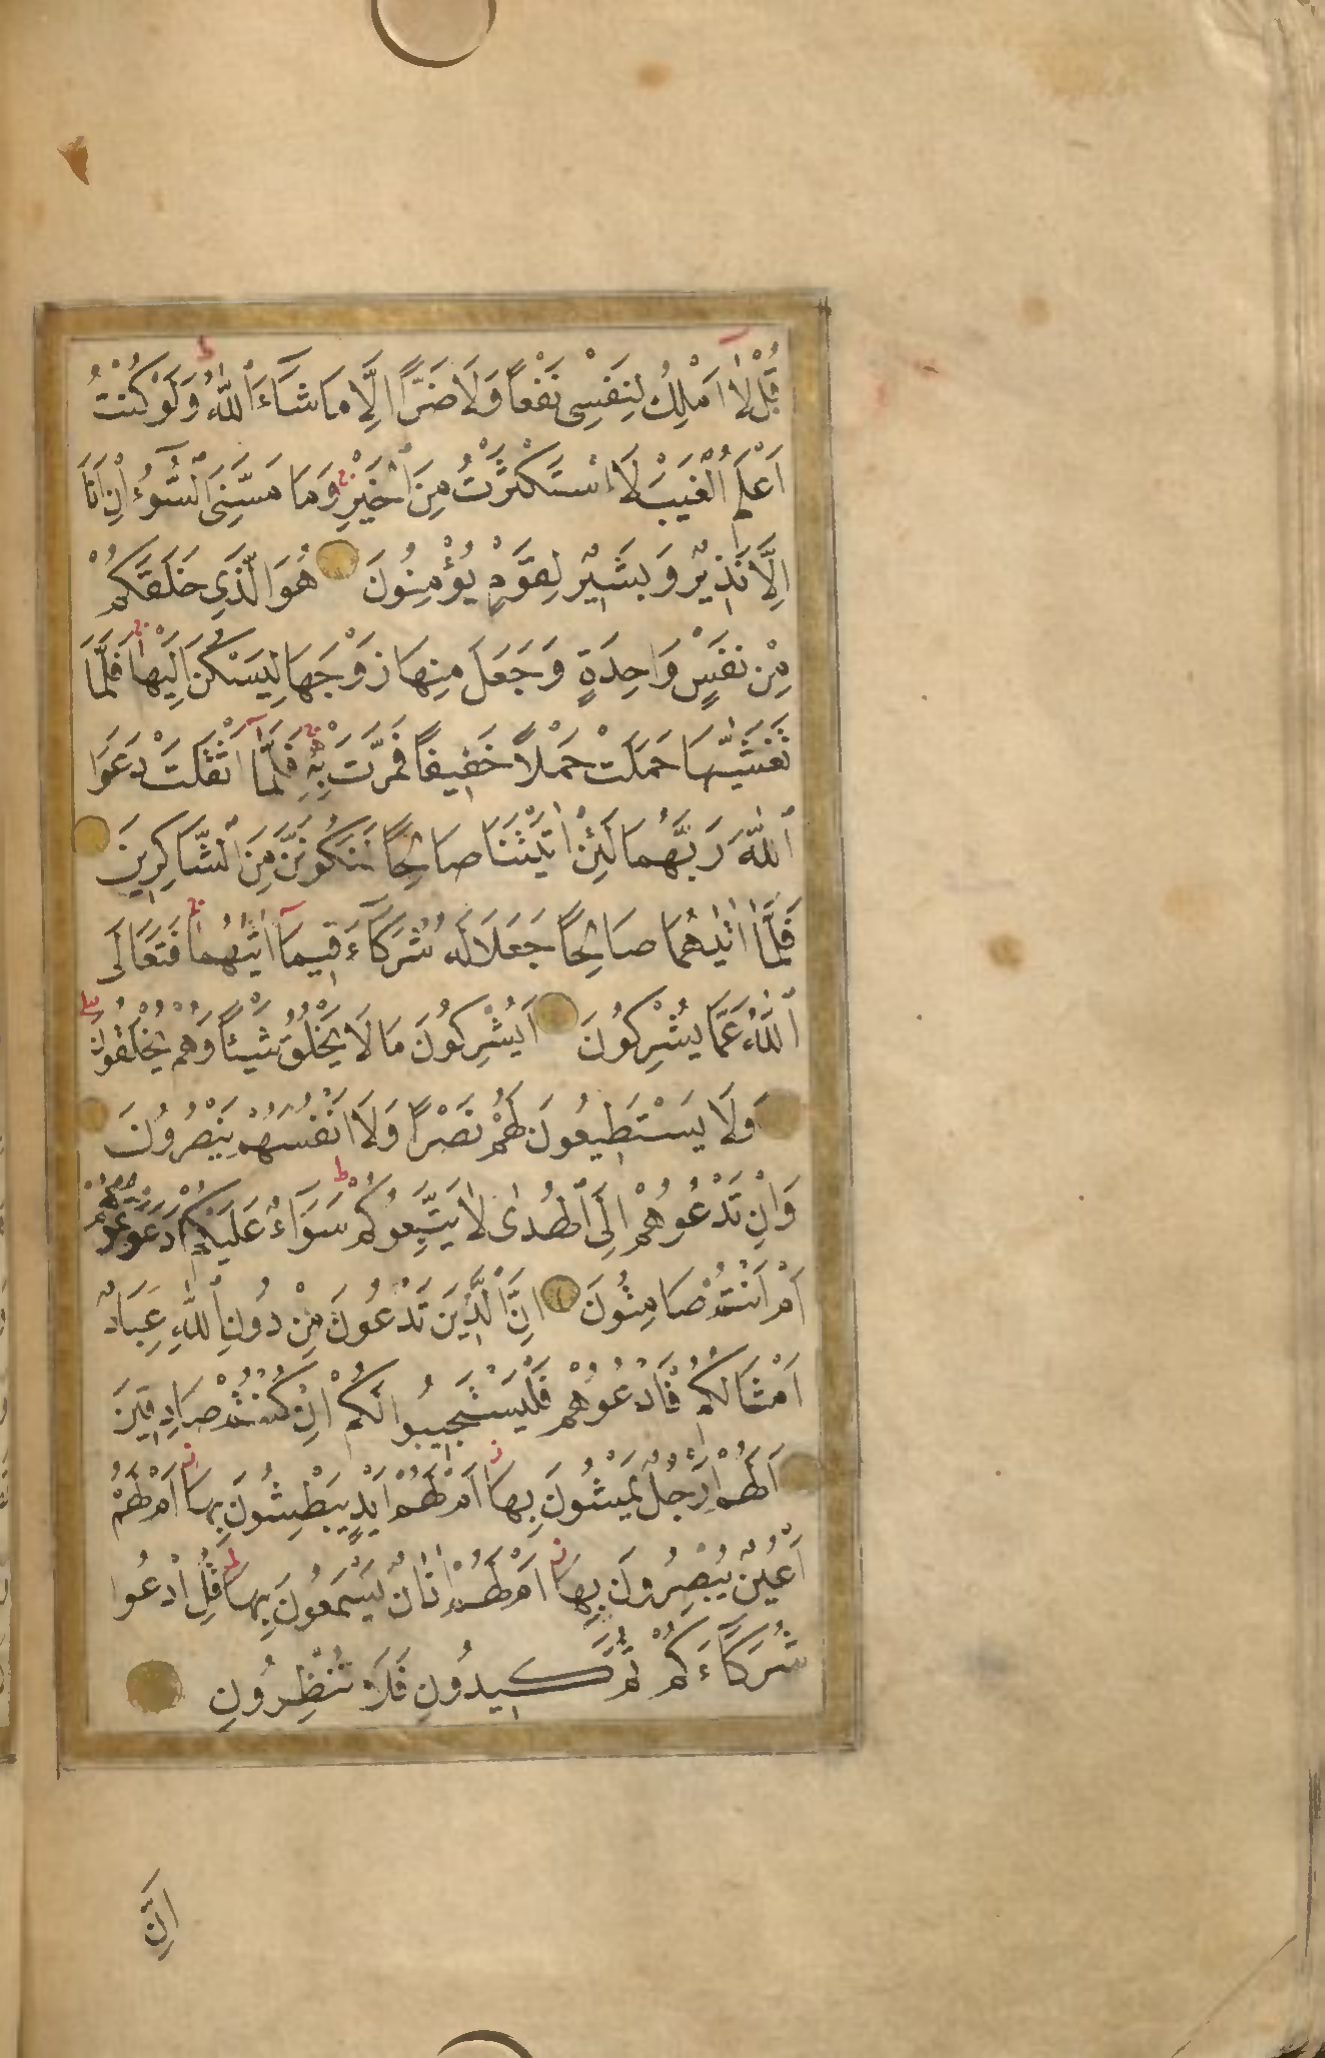 قُلْ لَا اَمْلِكُ لِنَفْسِى نَفْعًا وَلَا ضَرًّا اِلَّا مَا شَآءَ ٱللّٰهُ وَلَوْ كُنْتُ
اَعْلَمُ ٱلْغَيْبَ لَاسْتَكْثَرْتُ مِنَ ٱلْخَيْرِ وَمَا مَسَّنِىَ ٱلسُّوٓءُ اِنْ اَنَا۬
اِلَّا نَذِيرٌ وَبَشِيرٌ لِقَوْمٍ يُؤْمِنُونَ هُوَ الَّذِى خَلَقَكُمْ
مِنْ نَفْسٍ وَاحِدَةٍ وَجَعَلَ مِنْهَا زَوْجَهَا لِيَسْكُنَ اِلَيْهَا فَلَمَّا
تَغَشّٰيهَا حَمَلَتْ حَمْلًا خَفِيفًا فَمَرَّتْ بِهِ فَلَمَّآ اَثْقَلَتْ دَعَوَا
ٱللّٰهَ رَبَّهُمَا لَئِنْ اٰتَيْتَنَا صَالِحًا لَنَكُونَنَّ مِنَ ٱلشَّاكِرِينَ
فَلَمَّآ اٰتٰيهُمَا صَالِحًا جَعَلَا لَهُ شُرَكَآءَ فِيمَآ اٰتٰيهُمَا فَتَعَالَى
ٱللّٰهُ عَمَّا يُشْرِكُونَ اَيُشْرِكُونَ مَا لَا يَخْلُقُ شَيْئًا وَهُمْ يُخْلَقُونَ
وَلَا يَسْتَطِيعُونَ لَهُمْ نَصْرًا وَلَآ اَنْفُسَهُمْ يَنْصُرُونَ
وَاِنْ تَدْعُوهُمْ اِلَى ٱلْهُدٰى لَا يَتَّبِعُوكُمْ سَوَآءٌ عَلَيْكُمْ اَدَعَوْتُمُوهُمْ
اَمْ اَنْتُمْ صَامِتُونَ اِنَّ ٱلَّذِينَ تَدْعُونَ مِنْ دُونِ ٱللّٰهِ عِبَادٌ
اَمْثَالُكُمْ فَادْعُوهُمْ فَلْيَسْتَجِيبُوا لَكُمْ اِنْ كُنْتُمْ صَادِقِينَ
اَلَهُمْ اَرْجُلٌ يَمْشُونَ بِهَا اَمْ لَهُمْ اَيْدٍ يَبْطِشُونَ بِهَا اَمْ لَهُمْ
اَعْيُنٌ يُبْصِرُونَ بِهَا اَمْ لَهُمْ اٰذَانٌ يَسْمَعُونَ بِهَا قُلِ ادْعُوا
شُرَكَآءَكُمْ ثُمَّ كِيدُونِ فَلَا تُنْظِرُونِ
اِنَّ